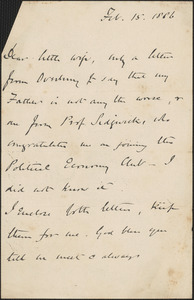 Feb. 15. 1886
Dear little wife, only a letter
from Overbury to say that my
Father is not any the worse, &
one from Prof Sedgwick, who
congratulates me on joining the
Political Economy Club – I
did not know it.
I enclose both letters, keep
them for me. God bless you
till we meet & always